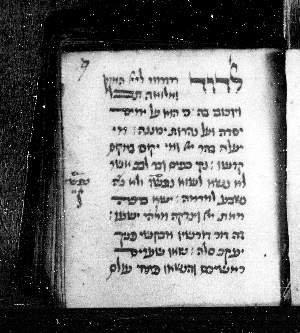 לדוד מזמור ליי הארץ
ומלואה תבל
ויושבי בה: כי הוא על ימים
יסדה ועל נהרות יכוננה: מי
יעלה בהר יי ומי יקום במקום
קדשו: נקי כפים ובר לבב אשר
לא נשא לשוא נפשו ולא
נשבע למרמה: ישא ברכה
מאת יי וצדקה מאלהי ישעו:
זה דור דורשיו מבקשי פניך
יעקב סלה: שאו שערים
ראשיכם והנשאו פתחי עולם